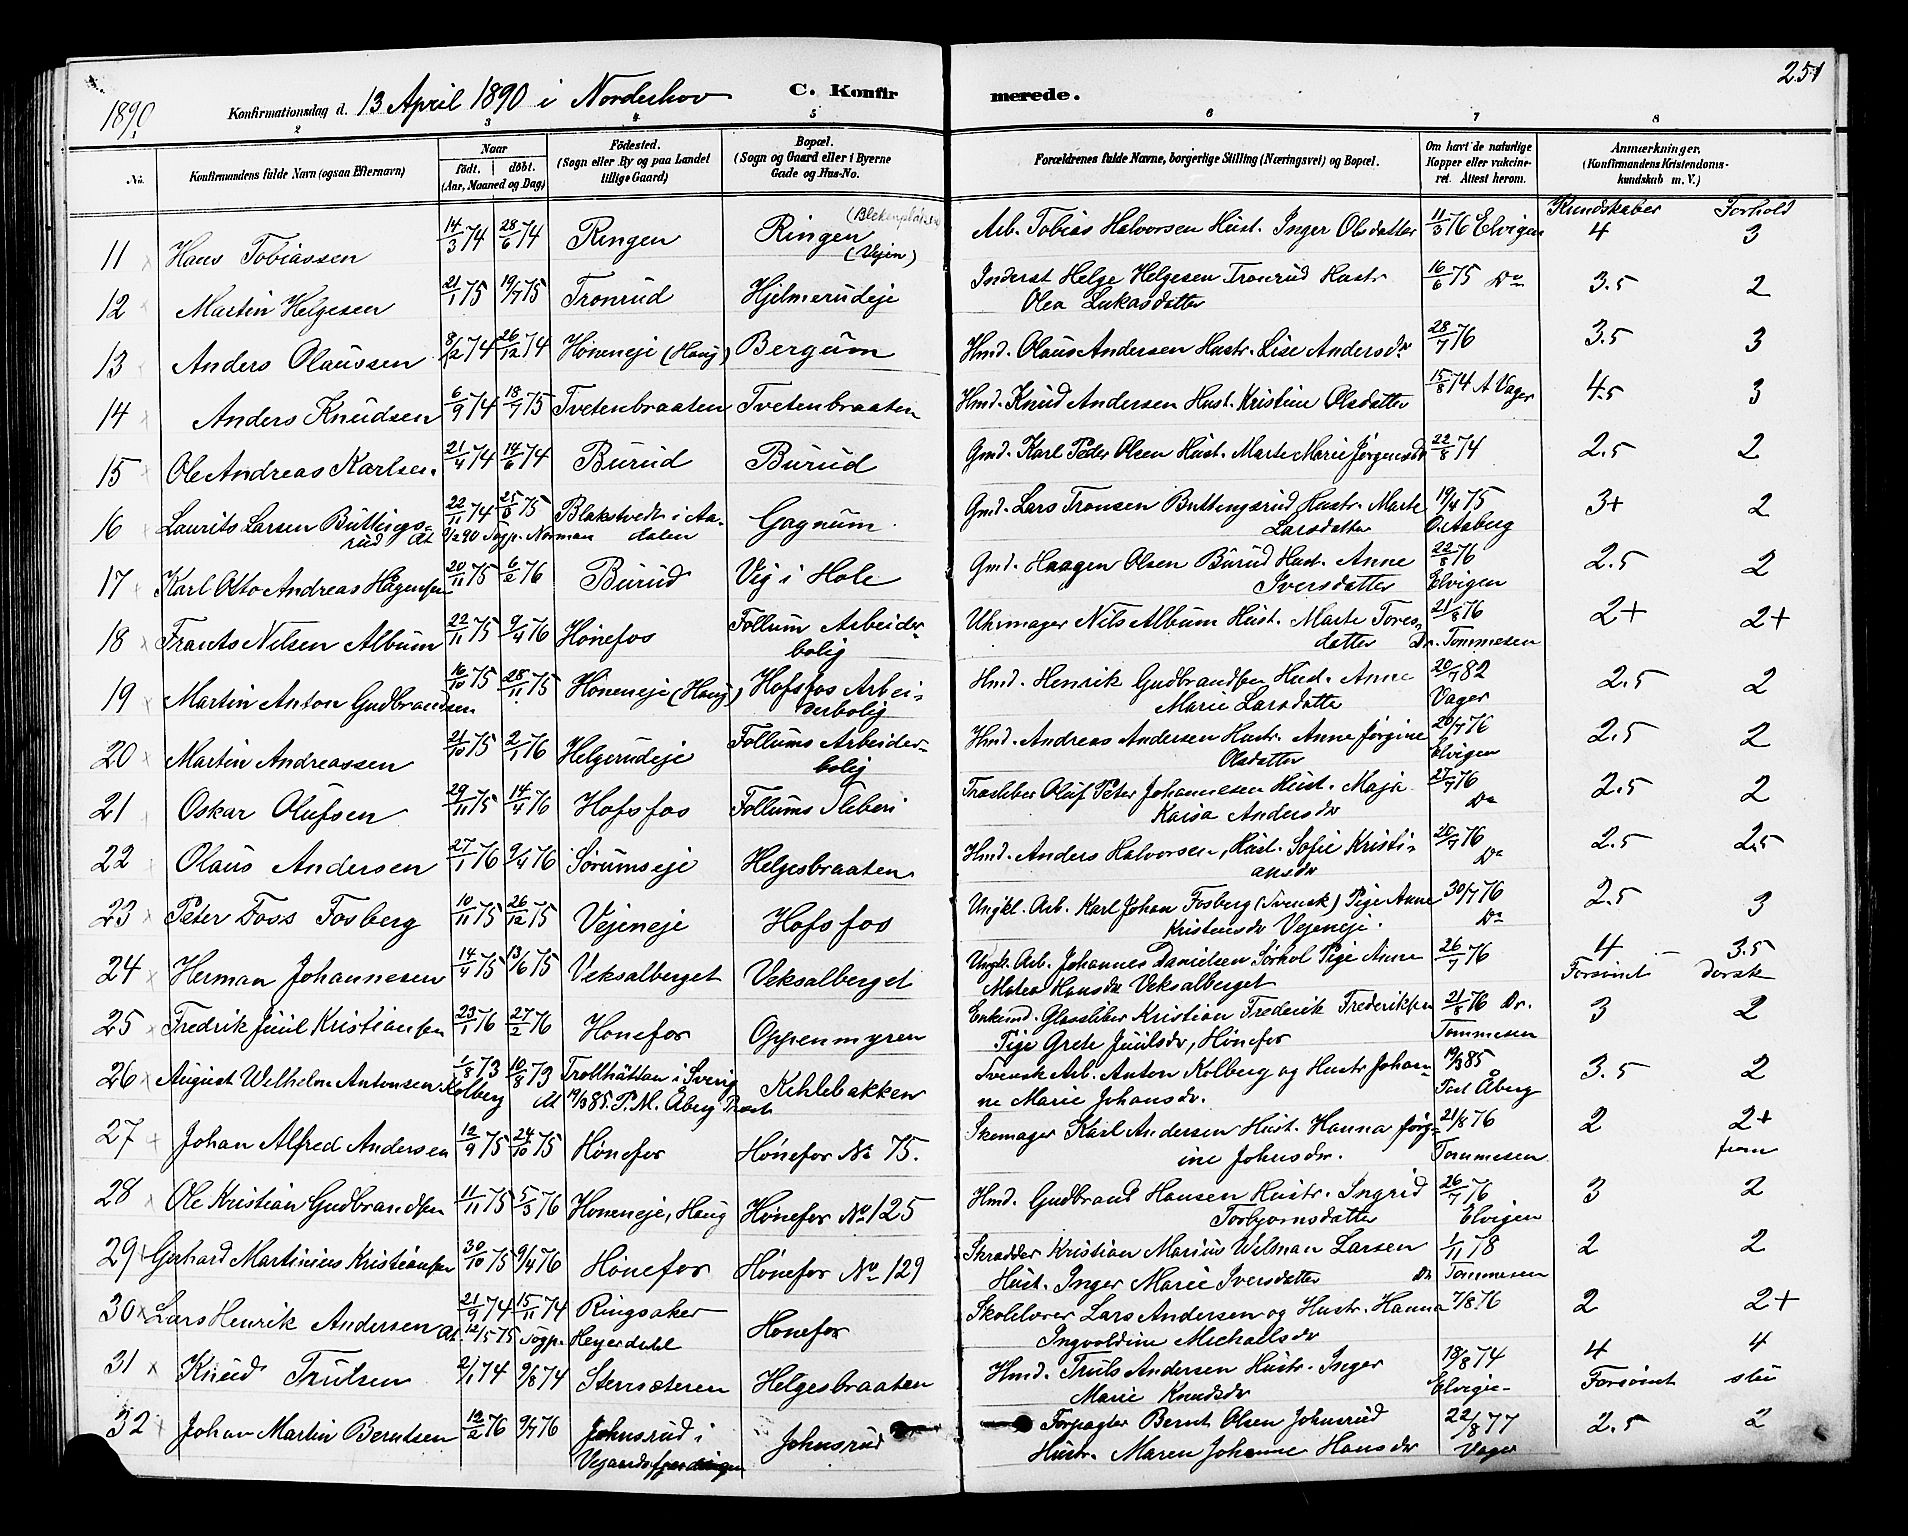 1890. Konfirmationsdag d. 13 April 1890 i Norderhov C. Konfirmerede. 251
2 3 4 5 6 7 8
No. Konfirmandens fulde Navn (ogsaa Efternavn) Naar født. døbt. (Aar, Maaned og Dag) Fødested. (Sogn eller By og paa Landet tillige Gaard) Bopæl. (Sogn og Gaard eller i Byerne Gade og Hus-No. Forældrenes fulde Navne, borgerlige Stilling (Næringsvei) og Bopæl. Om havt de naturlige Kopper eller vaccineret. Attest herom. Anmærkninger. (Konfirmandens Kristendomskundskab m. V.)
Kundskaber Forhold
11 Hans Tobiassen 14/3 74 28/6 74 Ringen Ringen (Vejen) Arb. Tobias Halvorsen Hust. Inger Olsdatter 11/3 76 Elvigen 4 3
12 Martin Helgesen 21/1 75 19/7 75 Tronrud Hjelmerudeje Inderst Helge Helgesen Tronrud Hustr. Olea Lukasdatter 16/6 75 Do 3.5 2
13 Anders Olaussen 8/12 74 26/12 74 Høneneje (Haug) Bergum Hmd. Olaus Andersen Hustr. Lise Andersdr 28/7 76 3.5 3
14 Anders Knudsen 6/9 74 18/7 75 Tvetenbraaten Tvetenbraaten Hmd. Knud Andersen Hust. Kristine Olsdatter 15/8 74 A Vager 4.5 3
15 Ole Andreas Karlsen 21/4 74 14/6 74 Burud Burud Gmd. Karl Peder Olsen Hust. Marte Marie Jørgensdr 22/8 74 2.5 2
16 Laurits Larsen Buttingsrud 22/11 74 25/5 75 Blakstvedt i Aadalen Gagnum Gmd. Lars Tronsen Buttingsrud Hustr. Marte Larsdatter 19/4 75 O. Aaberg 3+ 2
At. 9/2 90 Sogp. Norman
17 Karl Otto Andreas Hågensen 20/11 75 6/2 76 Burud Vig i Hole Gmd. Haagen Olsen Burud Hust. Anne Iversdatter 22/8 76 Elvigen 2.5 2
18 Frants Nilsen Album 22/11 75 9/4 76 Hønefos Follum Arbeiderbolig Uhrmager Nils Album Hust. Marte Toresdatter 21/8 76 Dr. Tommesen 2+ 2+
19 Martin Anton Gudbrandsen 16/10 75 28/11 75 Høneneje (Haug) Hofsfos Arbeiderbolig Hmd. Henrik Gudbrandsen Hust. Anne Marie Larsdatter 20/7 82 Vager 2.5 2
20 Martin Andreassen 21/10 75 2/1 76 Helgerudeje Follums Arbeiderbolig Hmd. Andreas Andersen Hustr. Anne Jørgine Olsdatter 20/7 76 Elvigen 2.5 2
21 Oskar Olufsen 29/11 75 14/4 76 Hofsfos Follums Sliberi Træsliber Oluf Peter Johannesen Hust. Maja Kaisa Andersdr 27/7 76 Do 2.5 2
22 Olaus Andersen 27/1 76 9/4 76 Sørumseje Helgesbraaten Hmd. Anders Halvorsen, Hust. Sofie Kristiansdr 20/7 76 Do 2.5 2.5
23 Peter Foss Fosberg 10/11 75 26/12 75 Vejeneje Hofsfos Ungkl. Arb. Karl Johan Fosberg (Svensk) Pige Anne Kristensdr Vejeneje. 30/7 76 Do 2.5 3
24 Herman Johannesen 14/4 75 13/6 75 Veksalberget Veksalberget Ungk. Arb. Johannes Danielsen Sørhol Pige Anne Matea Hansdr Veksalberget 26/7 76 4 Forsømt 3.5 dorsk
25 Fredrik Juul Kristiansen 23/1 76 27/2 76 Hønefos Oppenmyren Enkemd. Glassliber Kristian Frederik Frederiksen Pige Grete Juulsdr, Hønefos 21/8 76 Dr. Tommesen 3 2
26 August Welhelm Antonsen Kolberg 1/8 73 10/8 73 Trollhättan i Sverig Kihlebakken Svensk Arb. Anton Kolberg og Hustr Johanne Marie Johansdr. 19/3 85 Past Åberg 3.5 2
At 19/3 85. P. M. Åberg Past.
27 Johan Alfred Andersen 12/9 75 24/10 75 Hønefos Hønefos No 75. Skomager Karl Andersen Hust. Hanna Jørgine Johnsdr. 21/8 76 Tommesen 2 2+ from
28 Ole Kristian Gudbrandsen 11/11 75 5/3 76 Høneneje, Haug Hønefos No 125 Hmd. Gudbrand Hansen Hustr. Ingrid Torbjørnsdatter 26/7 76 Elvigen 3 2
29 Gerhard Martinius Kristiansen 30/10 75 9/4 76 Hønefos Hønefos No 129 Skrædder Kristian Marius Wilman Larsen Hust. Inger Marie Iversdatter 1/11 78 Dr Tommesen 2 2
30 Lars Henrik Andersen 21/9 74 15/11 74 Ringsaker Hønefos Skolelærer Lars Andersen og Hustr. Hanna Ingvoldine Michaelsdr 7/8 76 2 2+
At. 12/5 75 Sogp. Heyerdahl
31 Knud Trulsen 2/1 74 9/8 74 Stensæteren Helgesbraaten Hmd. Truls Andersen Hustr. Inger Marie Knudsdr 18/8 74 Elvigen 4 Forsømt 4 sløi
32 Johan Martin Berntsen 12/2 76 9/7 76 Johnsrud i Johnsrud Forpagter Bernt Olsen Johnsrud Hustr. Maren Johanne Hansdr 22/8 77 Vager 2.5 2